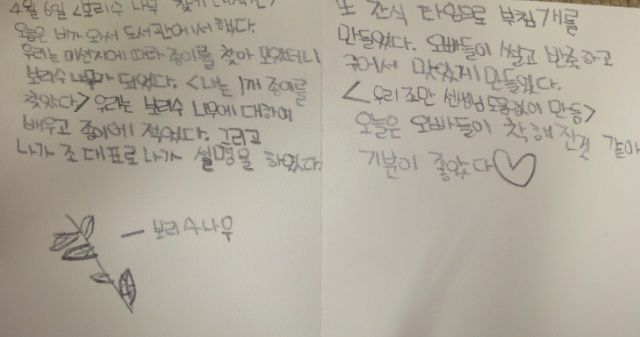 4월 6일 <보리수 나무 찾기
오늘은 비가 와서 도서관에서 했다.
우리는 미션지에 따라 종이를 찾아 모았더니
보리수 나무가 되었다. <나는 1개 종이를
찾았다> 우리는 보리수 나무에 대하여
배우고 종이에 적었다. 그리고
나가 조 대표로 나가 설명을 하였다.
보리수나무
또 간식 타임으로 부침개를
만들었다. 오빠들이 썰고 반죽하고
구어서 맛있게 만들었다.
<우리조만 선생님 도움없이 만듬>
오늘은 오빠들이 착해진것 같아
기분이 좋았다♡